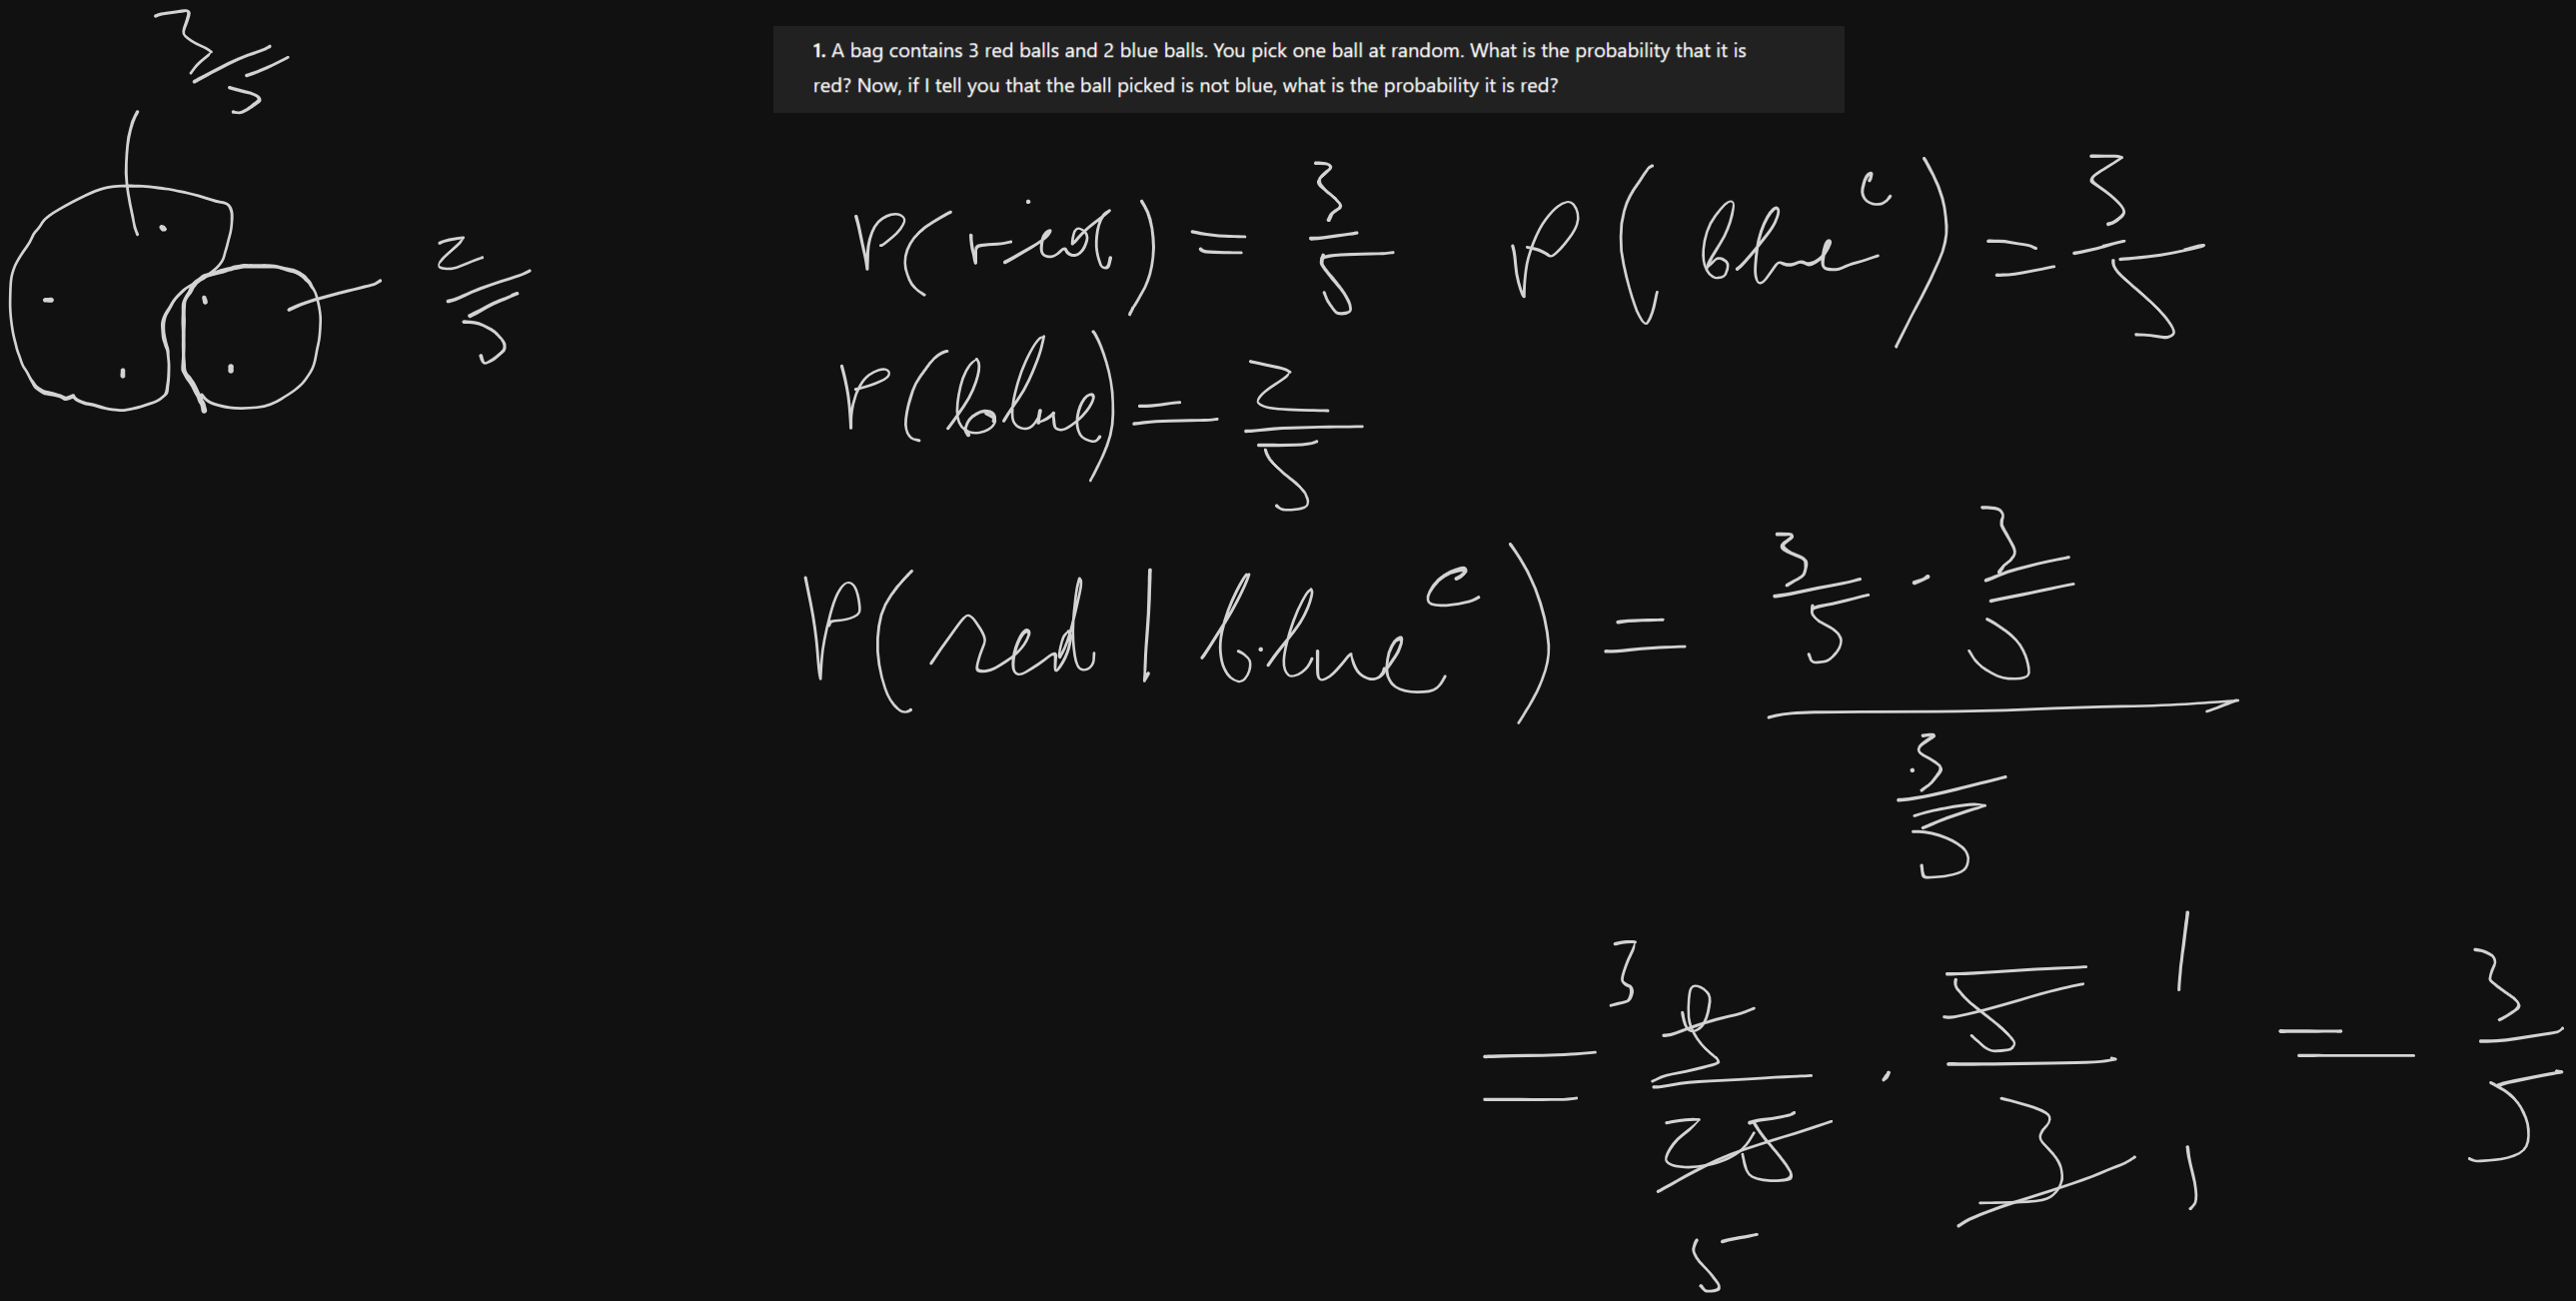 3/5
1. A bag contains 3 red balls and 2 blue balls. You pick one ball at random. What is the probability that it is
red? Now, if I tell you that the ball picked is not blue, what is the probability it is red?
2/5
P(red) = 3/5 P(blue^c) = 3/5
P(blue) = 2/5
P(red | blue^c) = (3/5 · 3/5) / (3/5)
= 3 9/25 5 · 5/3 1 1 = 3/5